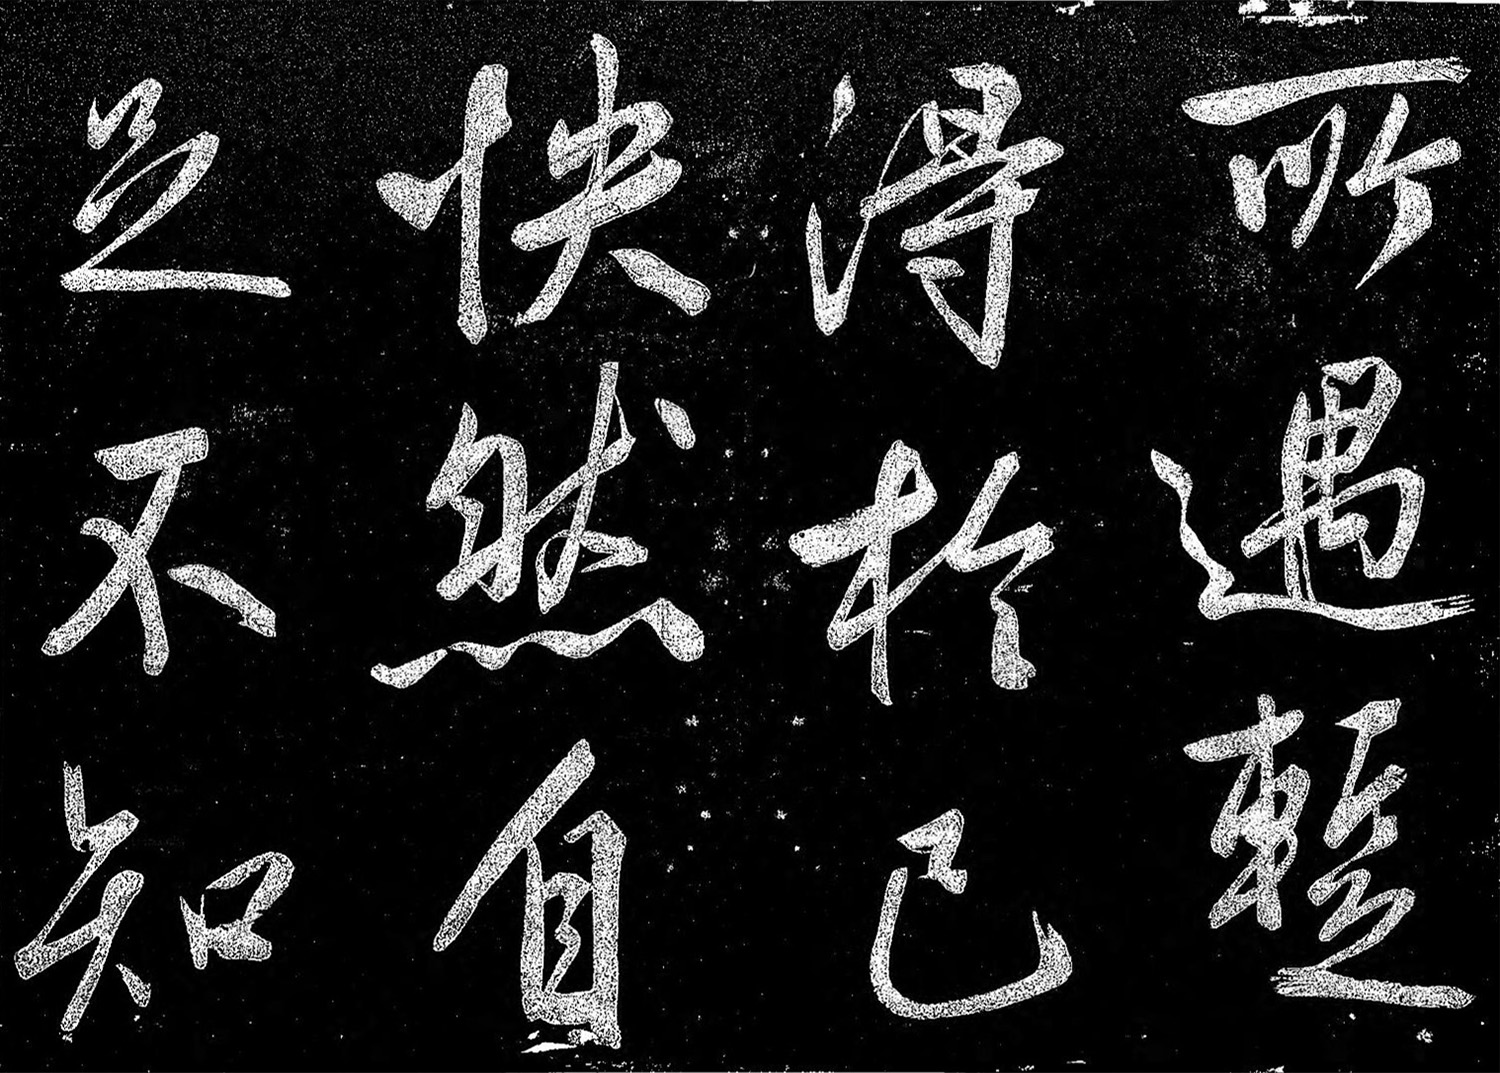 所遇蹔
得於己
怏然自
足不知